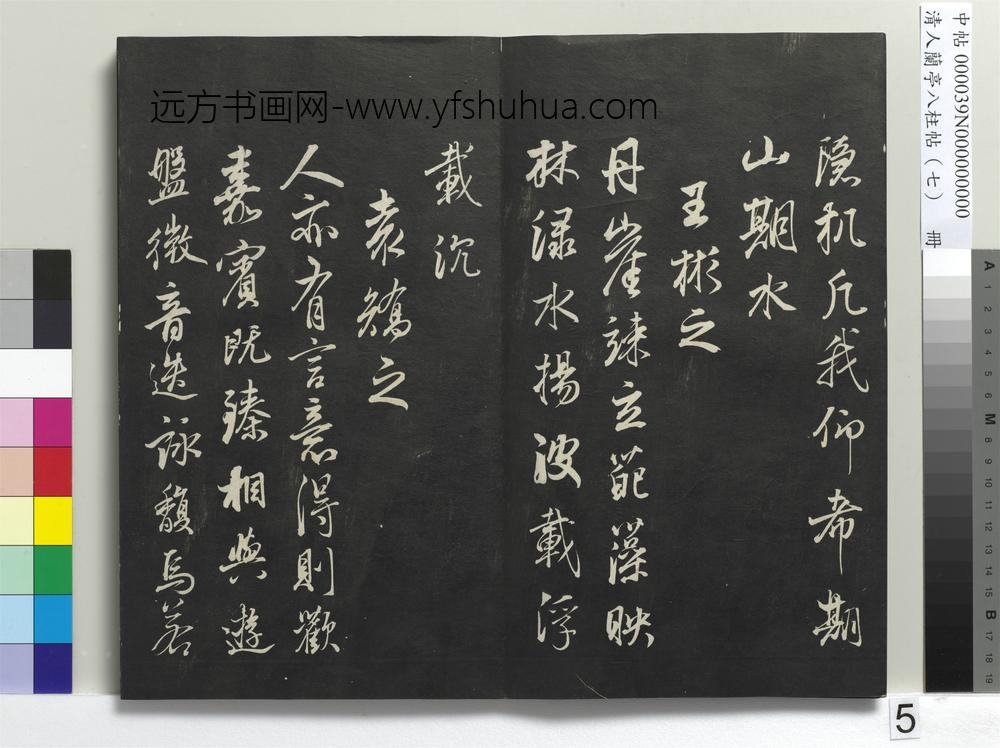 远方书画网-www.yfshuhua.com
隐机凡我仰希期
山期水
王彬之
丹崖竦立葩藻映
林渌水揚波載浮
載沉
袁矯之
人亦有言意得則歡
嘉賓既臻相與遊
盤微音迭詠馥焉若
中帖 000039N000000000
清人蘭亭八柱帖（七） 冊
A 1 2 3 4 5 6 M 8 9 10 11 12 13 14 15 B 17 18 19
5